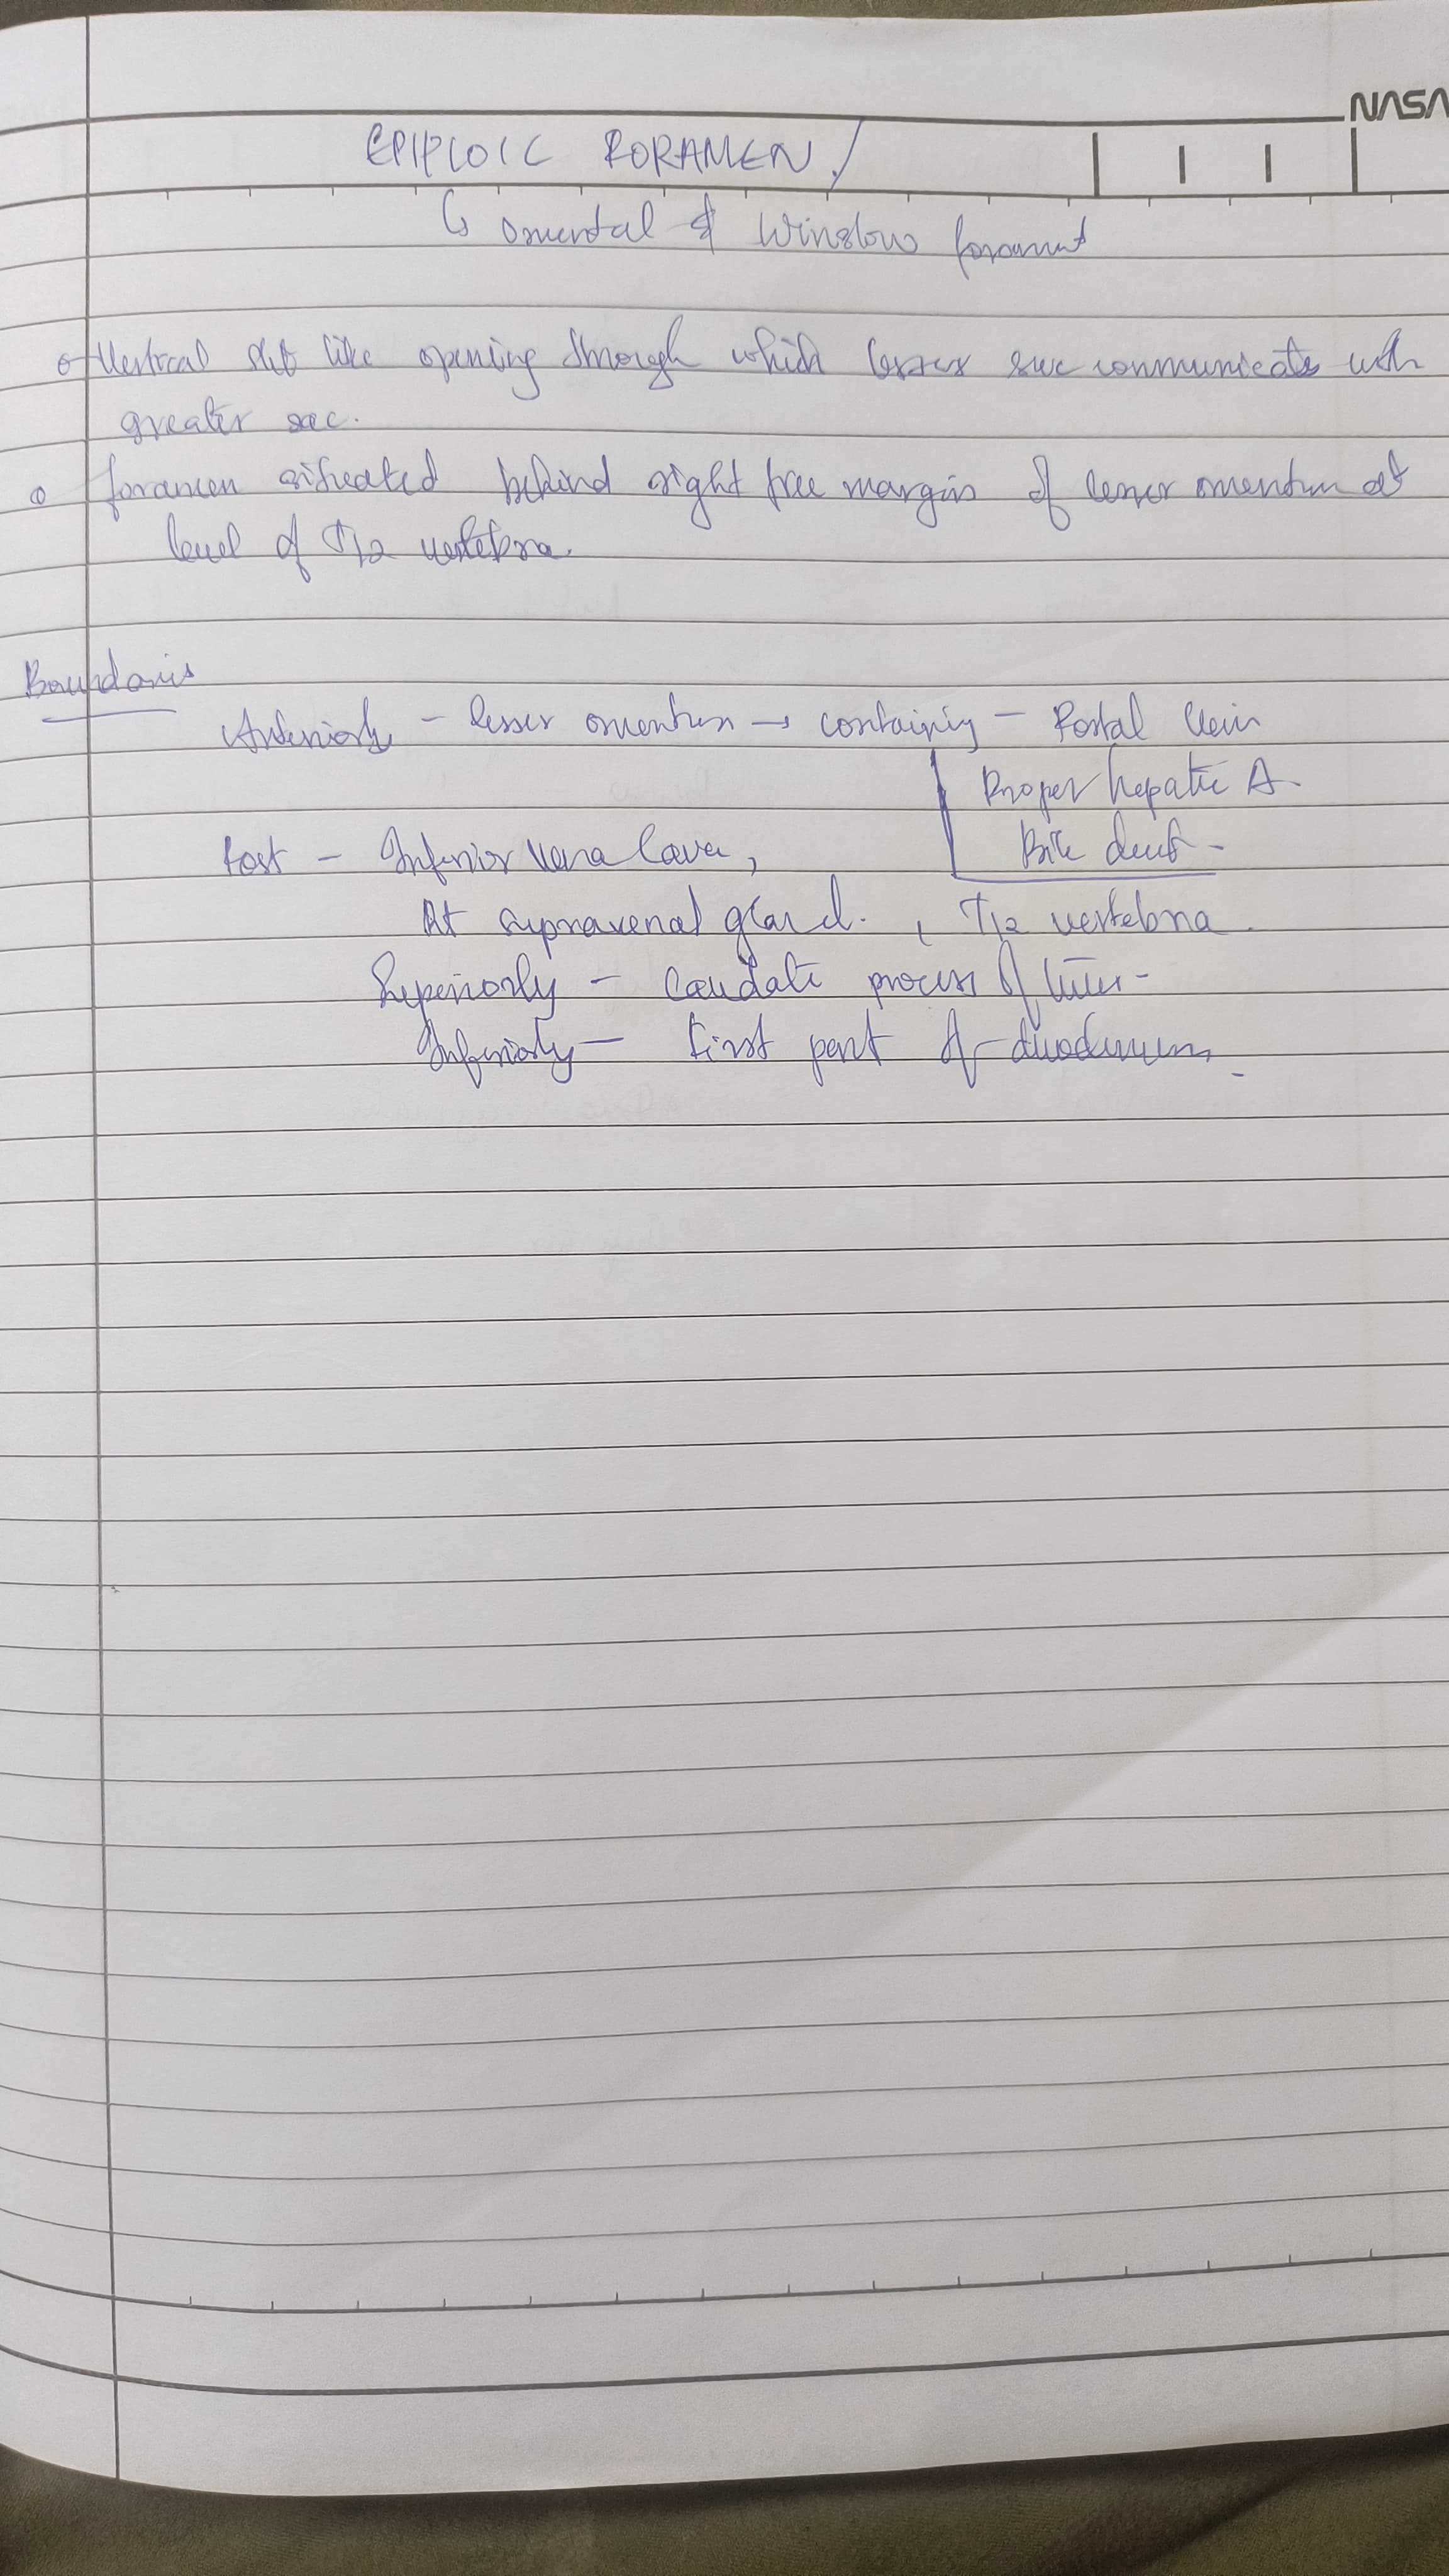 NASA
EPIPLOIC FORAMEN /
↳ omental & Winslow foramen
o Vertical slit like opening through which lesser sac communicate with
greater sac.
o foramen situated behind right free margin of lesser omentum at
level of T12 vertebra.
Boundaris
Anteriorly - lesser omentum → containing - Portal Vein
Proper hepatic A.
Post - Inferior Vena Cava, Bile duct -
Rt suprarenal gland. , T12 vertebra.
Superiorly - Caudate process of liver -
Inferiorly - First part of duodenum.